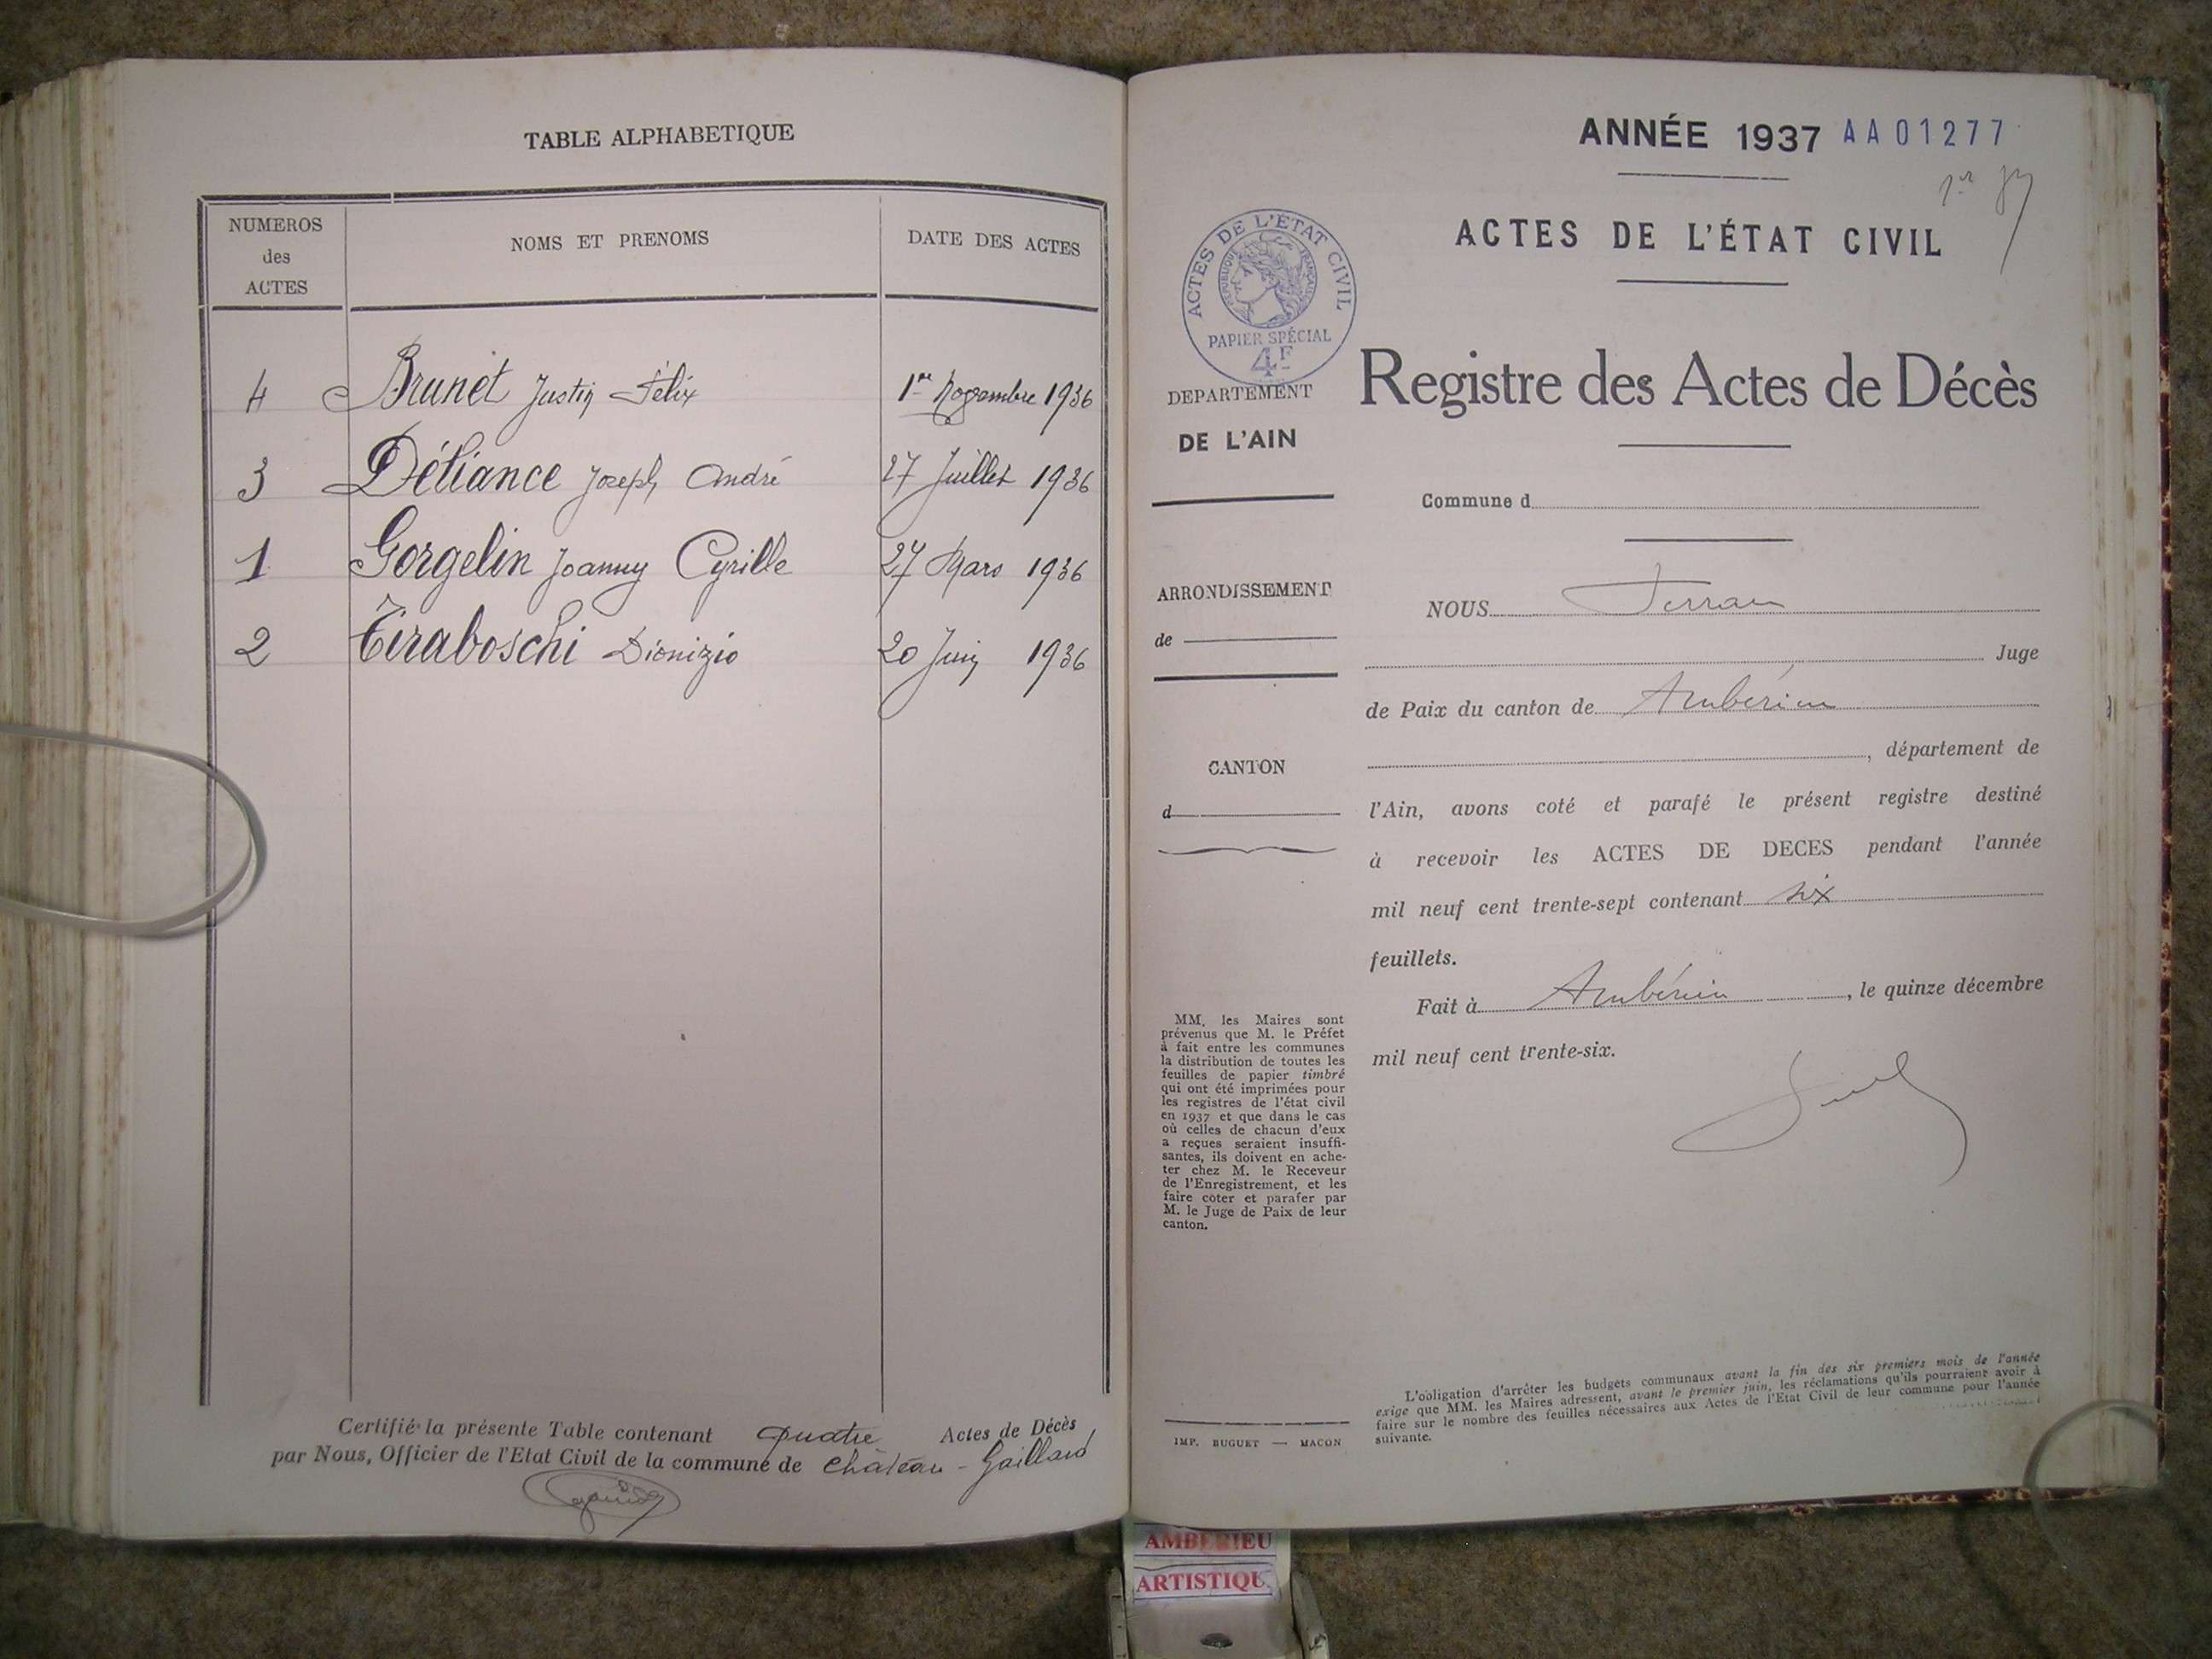 TABLE ALPHABETIQUE
NUMEROS
des
ACTES
NOMS ET PRENOMS
DATE DES ACTES
4 Brunet Justin Félix 1er Novembre 1936
3 Déliance Joseph André 27 Juillet 1936
1 Gorgelin Joanny Cyrille 27 Mars 1936
2 Tiraboschi Dionizio 20 Juin 1936
Certifié la présente Table contenant quatre Actes de Décès
par Nous, Officier de l'Etat Civil de la commune de Château-Gaillard
ANNÉE 1937 AA01277
ACTES DE L'ÉTAT CIVIL
ACTES DE L'ÉTAT CIVIL
RÉPUBLIQUE FRANÇAISE
PAPIER SPÉCIAL
4F
DEPARTEMENT
DE L'AIN
Registre des Actes de Décès
Commune d
ARRONDISSEMENT
de
NOUS
Juge
de Paix du canton de Ambérieu
, département de
CANTON
d
l'Ain, avons coté et parafé le présent registre destiné
à recevoir les ACTES DE DECES pendant l'année
mil neuf cent trente-sept contenant six
feuillets.
Fait à Ambérieu, le quinze décembre
mil neuf cent trente-six.
MM. les Maires sont
prévenus que M. le Préfet
à fait entre les communes
la distribution de toutes les
feuilles de papier timbré
qui ont été imprimées pour
les registres de l'état civil
en 1937 et que dans le cas
où celles de chacun d'eux
a reçues seraient insuffi-
santes, ils doivent en ache-
ter chez M. le Receveur
de l'Enregistrement, et les
faire coter et parafer par
M. le Juge de Paix de leur
canton.
IMP. BUGUET — MACON
L'obligation d'arrêter les budgets communaux avant la fin des six premiers mois de l'année
exige que MM. les Maires adressent, avant le premier juin, les réclamations qu'ils pourraient avoir à
faire sur le nombre des feuilles nécessaires aux Actes de l'Etat Civil de leur commune pour l'année
suivante.
AMBERIEU
ARTISTIQUE